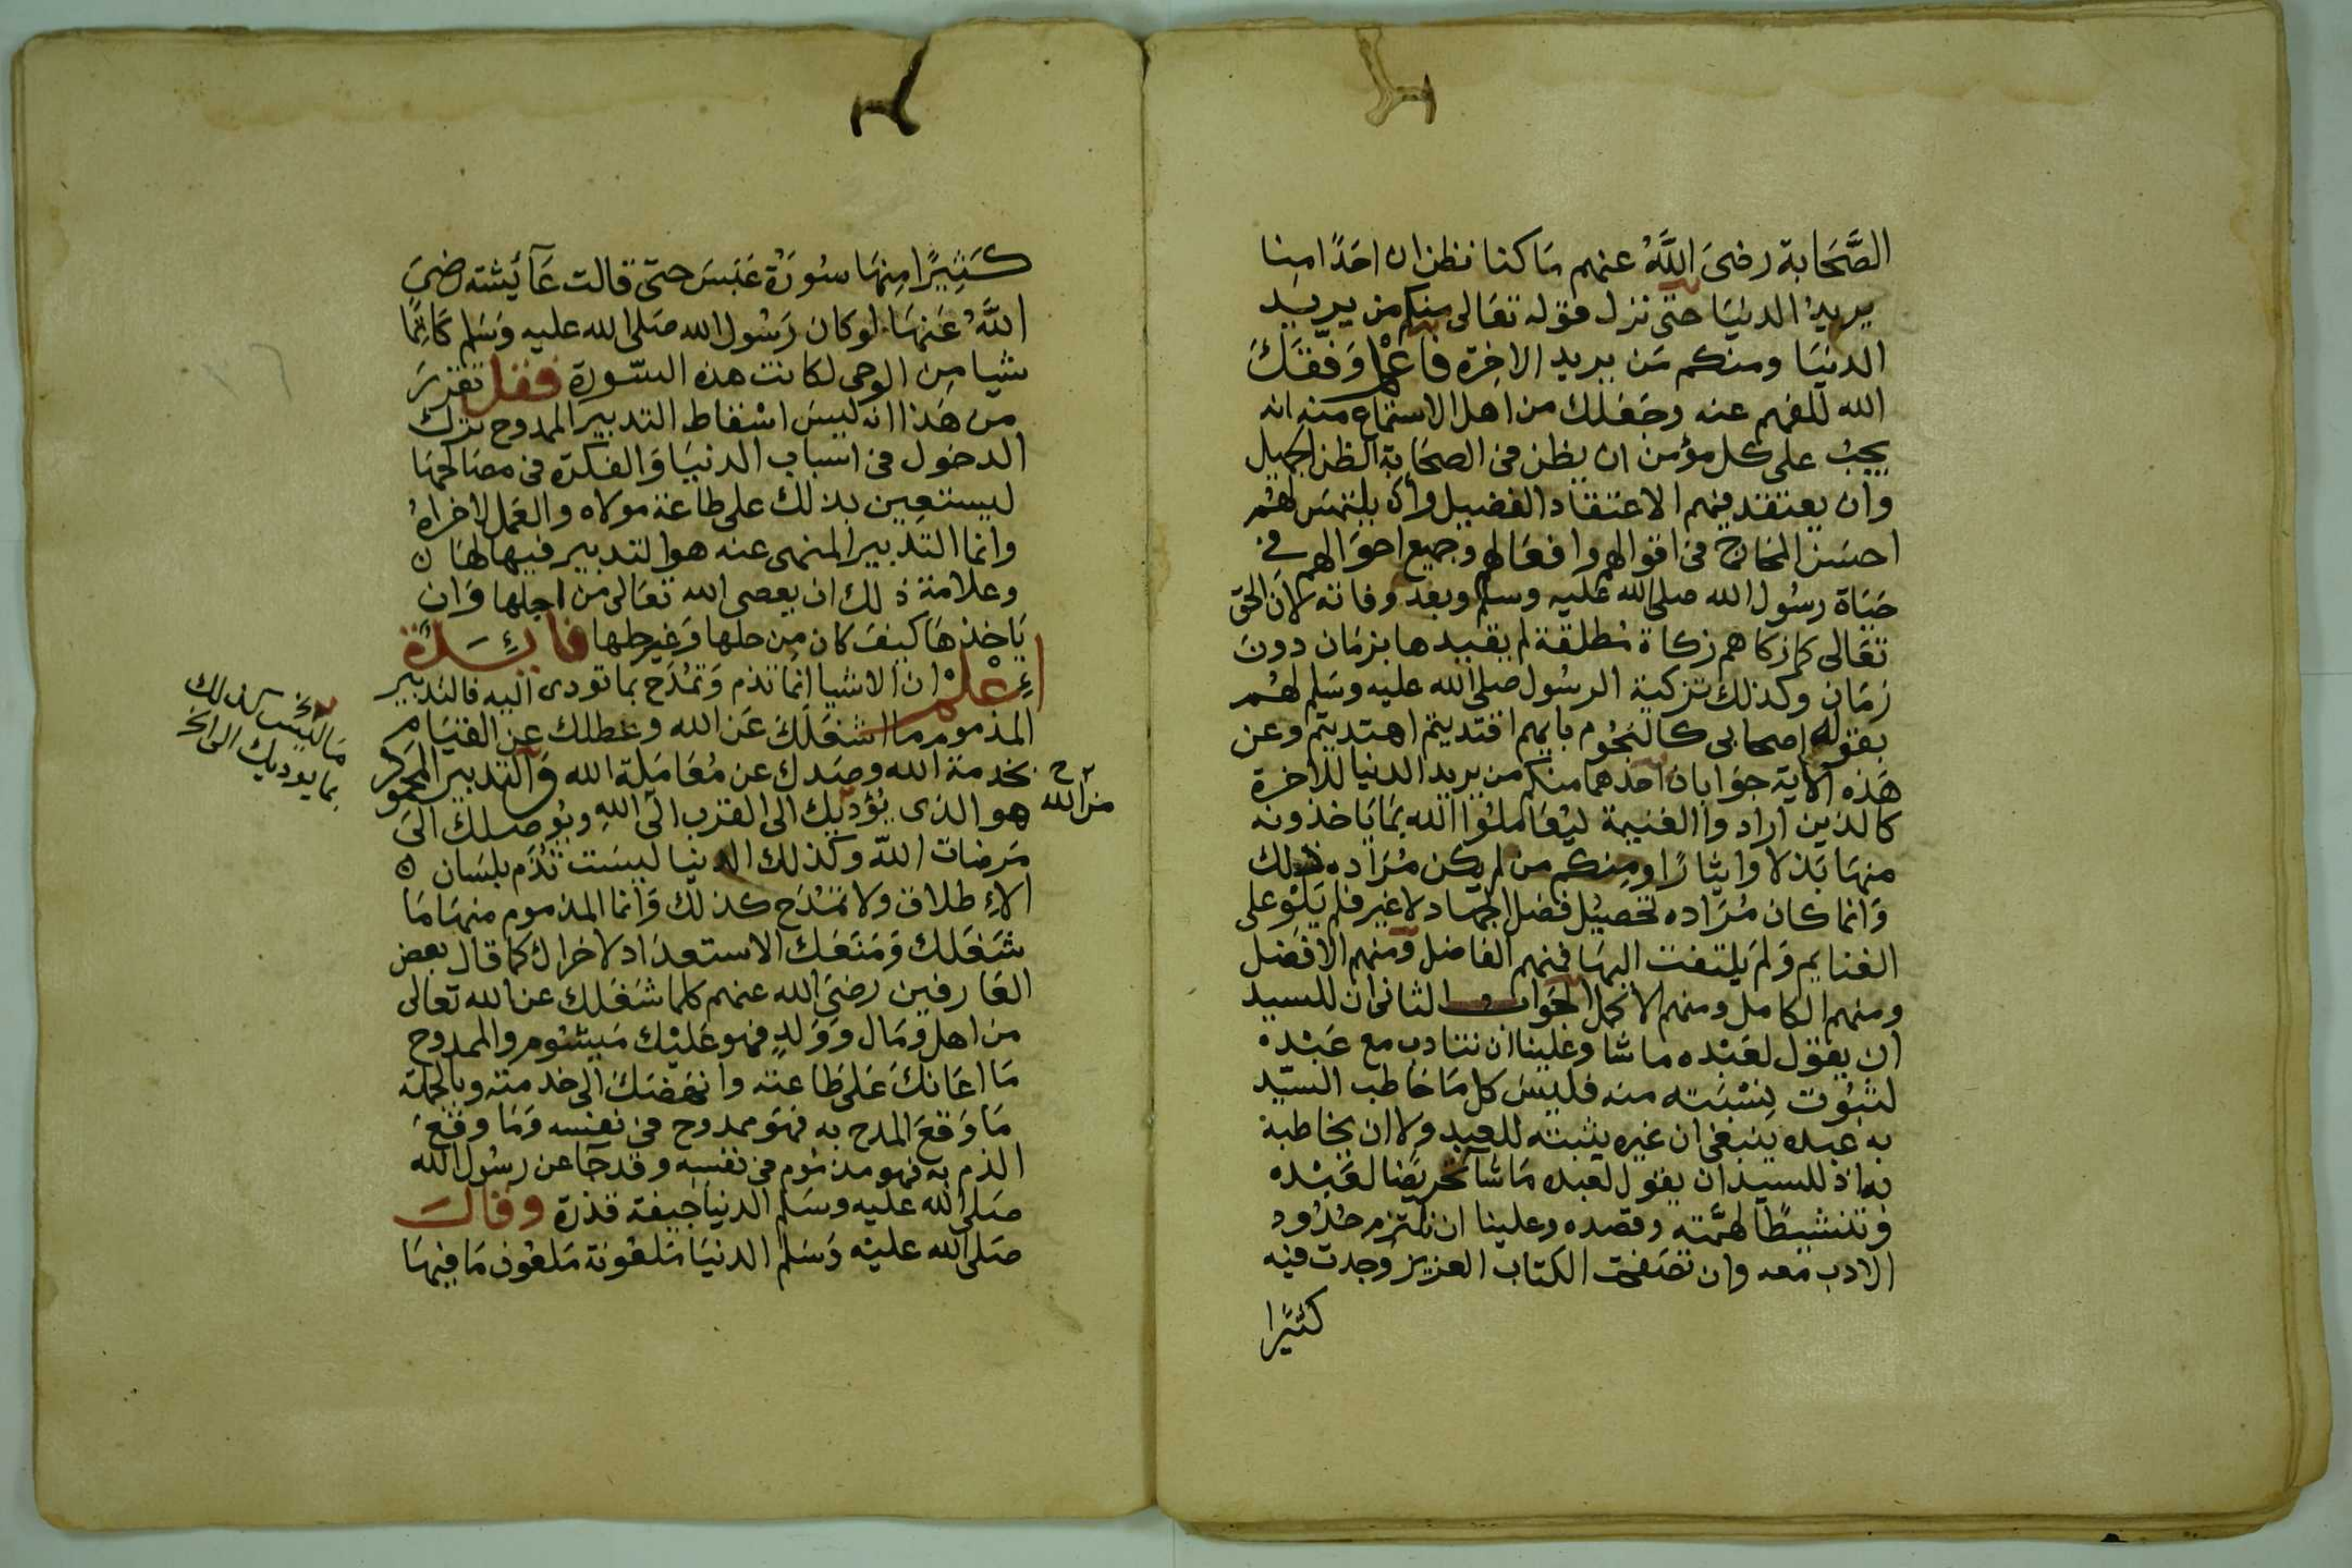 الصَّحَابة رضىَ اللَّهُ عنهم مَا كنا نظن ان احَدًا مِنا
يريدُ الدنيَا حتى نزل قوله تعَالى منكم من يريد
الدنيَا ومنكم مَن يريد الاخِرة فاعْلم وَفّقكَ
الله للفهم عنه وجَعَلك من اهل الاستماع منه انه
يجبُ على كل مؤمن ان يظن فى الصحَابة الظن الجميل
وان يعتقد فيهم الاعتقاد الفضيل وأن يلتمسَ لهُم
احسَن المخارج فى اقوالهم وافعَالهم وجميع احوَالهم في
حَيَاة رسُول الله صلى الله عليه وسلم وبعد وفاته لأن الحق
تعَالى كما زكاهم زكاة مُطلقة لم يقيدها بزمَان دونَ
زمَان وكذلك تزكية الرسُول صلى الله عليه وسَلم لهُم
بقوله اصحابى كالنجُوم بايهم اقتديتم اهتديتم وعن
هَذه الاية جوَابان احدهما منكم من يريد الدنيا للاخرة
كالذين ارادوا الغنيمة ليُعَاملوُا الله بمَا ياخذونه
منهَا بَذلا وايثارًا ومِنكم من لم يكن مُرَاده ذلك
وَانما كان مُرَاده تحصيُل فضل الجهاد لا غير فلم يَلْو على
الغنايم وَلم يلتفت اليهَا فمنهم الفاضل ومنهم الافضل
ومنهم الكامل ومنهم الاكمل الجوَاب الثانى ان للسيد
ان يقول لعَبْده ما شا وعلينا ان نتادب مع عَبْده
لثبوُت نِسْبَته منه فليسَ كل مَا خاطب السيّد
به عبده ينبغى ان غيره يثبته للعبد ولا ان يخاطبه
به اذ للسيد ان يقول لعبده مَا شآ تحريضًا لعَبْده
وتنشيطًا لهمَّته وقصده وعلينا ان نلتزم حُدُود
الادب معه وان تصَفحت الكتاب العزيز وَجدت فيه
كثيرًا
كَثِيرًا مِنهَا سُورَة عَبَسَ حتى قالت عَآئيشته رضىَ
اللَّهُ عَنهَا لو كان رَسُول الله صَلى الله عليه وَسَلم كَاتِمًا
شيا مِن الوحى لكانت هذه السّورة فقل تقررَ
من هَذا انه ليسَ اسْقاط التدبير الممدوح ترك
الدخول فى اسباب الدنيَا وَالفكرة فى مصَالحهَا
ليستعِين بذلك على طاعة مولاه والعَمل لاخراهُ
وانما التدَبير المنهى عنه هو التدبير فيها لهَا ن
وعلامة ذلك ان يعصى الله تعَالى من اجلها وَان
يَاخذهَا كيفَ كان مِن حلها وَغير حلها فايِٕسَدة
إِعْلمْ ان الاشيا انما تذم وَتمْدَح بما تودى اليه فالتدبير
المذموم ما اشغَلكَ عَن الله وعطلك عن القيَام
بخدمة الله وصَدك عن مُعَامَلة الله وَالتدبير المحمود
من الله
هو الذى يُؤديك الى القرب الى اللهِ ويُوصلك الىَ
مَا ليسَ كذلك
بما يوديك الى
مَرضات اللّه وكذلك الدنيا ليسَت تُذَم بلسَان
الاِطلاق ولا تمْدَح كذلك وَانما المذموم منهَا مَا
شغَلك وَمَنعَك الاستعدَاد لاخراك كما قال بعض
العَارفين رضىَ الله عنهم كلما شغَلك عن الله تعالى
من اهل وَمَال وَوَلدٍ فهو عَليْك مَيشئوم والممدوح
مَا اعَانكَ عَلى طَاعته وانهَضَك الى خدمته وبالجملة
مَا وَقعَ المدح به فهوَ ممدوح فى نفسه وَمَا وقعَ
الذم به فهو مذمُوم فى نفسِه وقد جَآ عن رسُول الله
صَلى الله عليه وسَلم الدنيا جيفة قذرة وقالَ
صَلى الله عليْه وَسَلم الدنيَا مَلعُونة مَلعُون مَا فيهَا